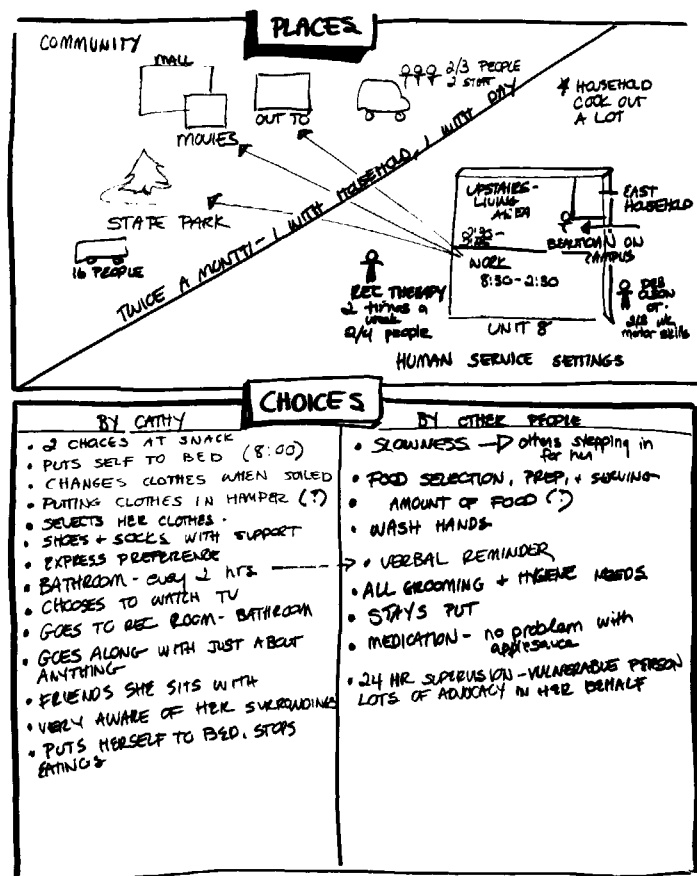 PLACES
COMMUNITY
MALL
MOVIES
OUT TO
2/3 PEOPLE
2 STAFF
* HOUSEHOLD
COOK OUT
A LOT
STATE PARK
16 PEOPLE
TWICE A MONTH - 1 WITH HOUSEHOLD, 1 WITH DAY
UPSTAIRS -
LIVING
AREA
2:30-
WORK
8:30-2:30
UNIT 8
EAST
HOUSEHOLD
BEAUTICIAN ON
CAMPUS
REC THERAPY
2 times a
week
2/4 people
DEB
OLSON
OT -
wk
motor skills
HUMAN SERVICE SETTINGS
CHOICES
BY CATHY
• 2 CHOICES AT SNACK
• PUTS SELF TO BED (8:00)
• CHANGES CLOTHES WHEN SOILED
• PUTTING CLOTHES IN HAMPER (?)
• SELECTS HER CLOTHES.
• SHOES + SOCKS WITH SUPPORT
• EXPRESS PREFERENCE
• BATHROOM - every 2 hrs
• CHOOSES TO WATCH TV
• GOES TO REC ROOM - BATHROOM
• GOES ALONG WITH JUST ABOUT
ANYTHING
• FRIENDS SHE SITS WITH
• VERY AWARE OF HER SURROUNDINGS
• PUTS HERSELF TO BED, STOPS
EATINGS
BY OTHER PEOPLE
• SLOWNESS → others stepping in
for her
• FOOD SELECTION, PREP, + SERVING
• AMOUNT OF FOOD (?)
• WASH HANDS
• VERBAL REMINDER
• ALL GROOMING + HYGIENE NEEDS
• STAYS PUT
• MEDICATION - no problem with
applesauce
• 24 HR SUPERVISION - VULNERABLE PERSON
LOTS OF ADVOCACY IN HER BEHALF